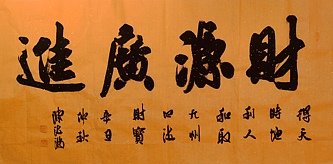 財源廣進
得天
時地
利人
和取
九州
四海
財寶
仲秋